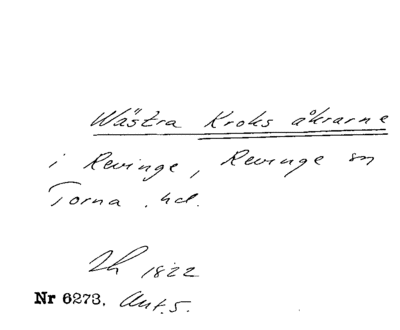 Wästra Kroks åkrarne
i Revinge, Revinge sn
Torna hd.
Lh 1822
Nr 6273. Akt. 5.